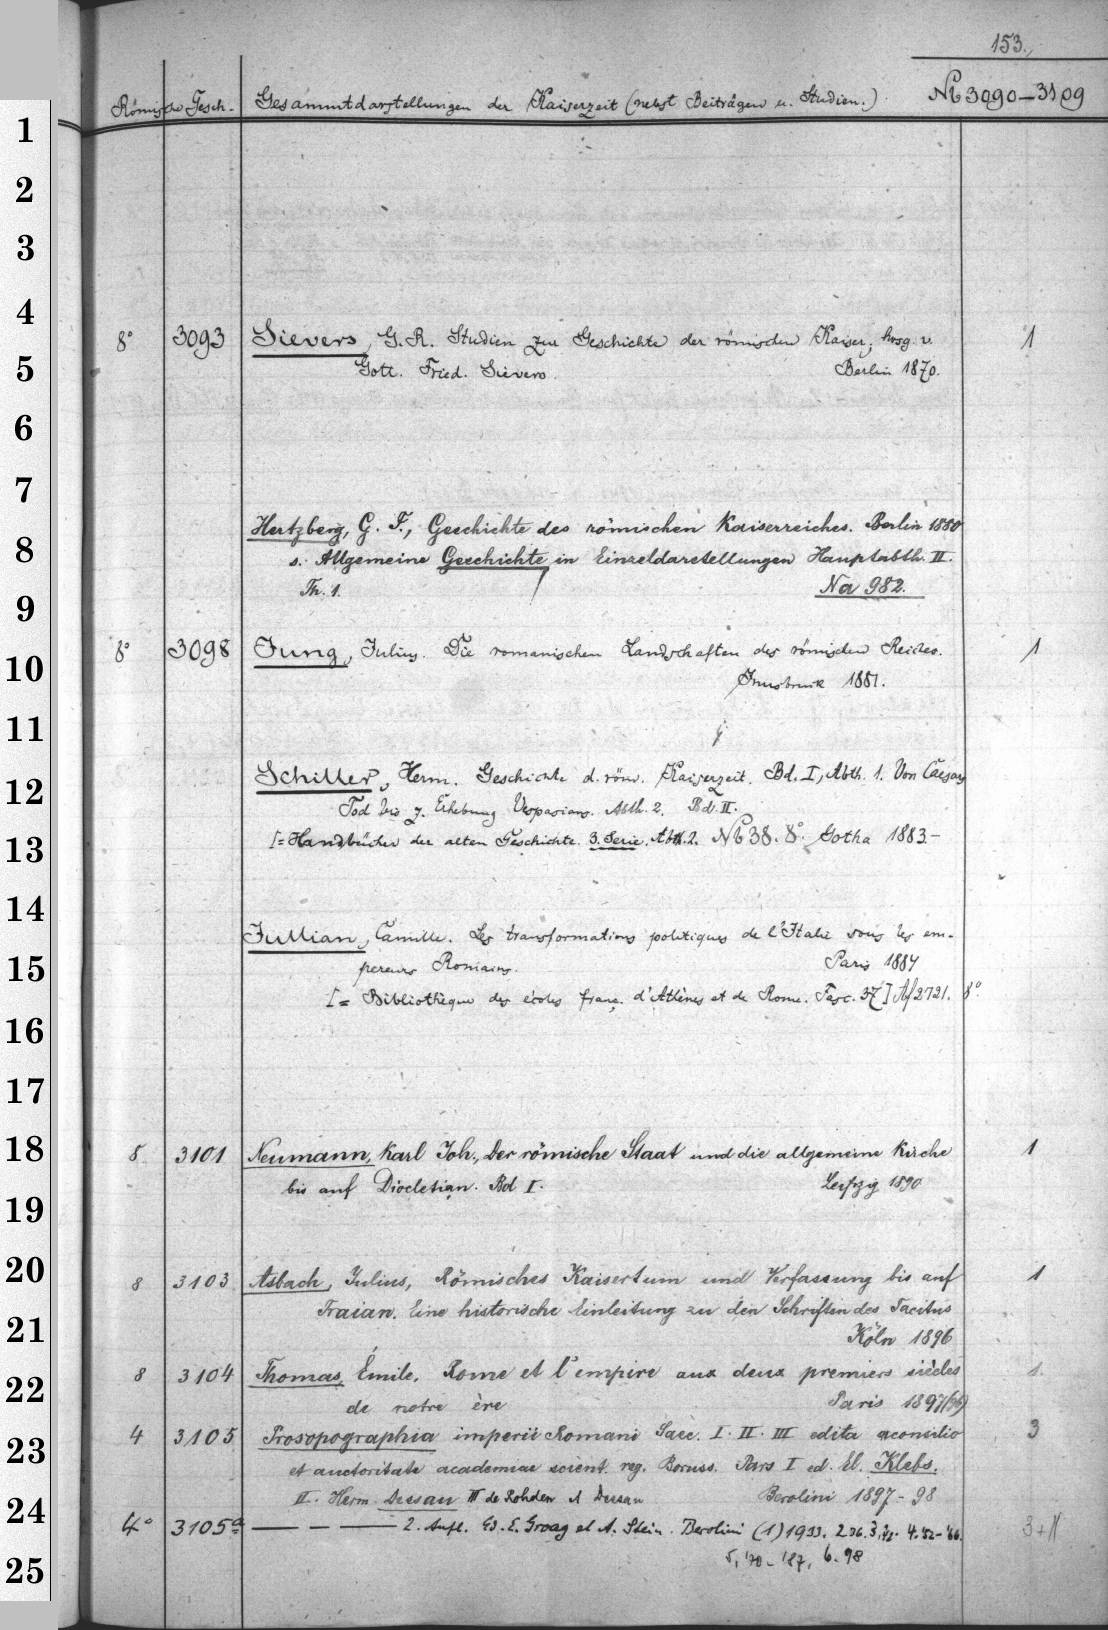 153.
Römische Gesch. Gesammtdarstellungen der Kaiserzeit (nebst Beiträgen u. Studien.) Na 3090–3109
1
2
3
4
8° 3093 Sievers, G. R. Studien zur Geschichte der römischen Kaiser; hrsg. v. 1
5 Gott. Fried. Sievers. Berlin 1870.
6
7
Hertzberg, G. F., Geschichte des römischen Kaiserreiches. Berlin 1880
8 s. Allgemeine Geschichte in Einzeldarstellungen Hauptabth. II.
9 Th. 1. Na 982.
8° 3098 Jung, Julius. Die romanischen Landschaften des römischen Reiches. 1
10 Innsbruck 1881.
11
12 Schiller, Herm. Geschichte d. röm. Kaiserzeit. Bd. I, Abth. 1. Von Caesars
Tod bis z. Erhebung Vespasians. Abth. 2. Bd. II.
13 [= Handbücher der alten Geschichte. 3. Serie. Abth. 2. Na 38. 8° Gotha 1883–
14
Jullian, Camille. Les transformations politiques de l'Italie sous les em-
15 pereurs Romains. Paris 1884
[= Bibliothèque des écoles franç. d'Athènes et de Rome. Fasc. 37] Af 2721. 8°
16
17
18 8 3101 Neumann, Karl Joh., Der römische Staat und die allgemeine Kirche 1
bis auf Diocletian. Bd I. Leipzig 1890
19
20 8 3103 Asbach, Julius, Römisches Kaisertum und Verfassung bis auf 1
21 Traian. Eine historische Einleitung zu den Schriften des Tacitus
Köln 1896
22 8 3104 Thomas, Émile, Rome et l'empire aux deux premiers siècles 1
de notre ère Paris 1897(96)
23 4 3105 Prosopographia imperii Romani Saec. I. II. III edita consilio 3
et auctoritate academiae scient. reg. Boruss. Pars I ed. El. Klebs.
II. Herm. Dessau III de Rohden et Dessau Berolini 1897–98
24 4° 3105a — – — 2. Aufl. Ed. E. Groag et A. Stein. Berolini (1) 1933. 2 36. 3, 43. 4. '52–'66.
25 5, '70–'87, 6. 98